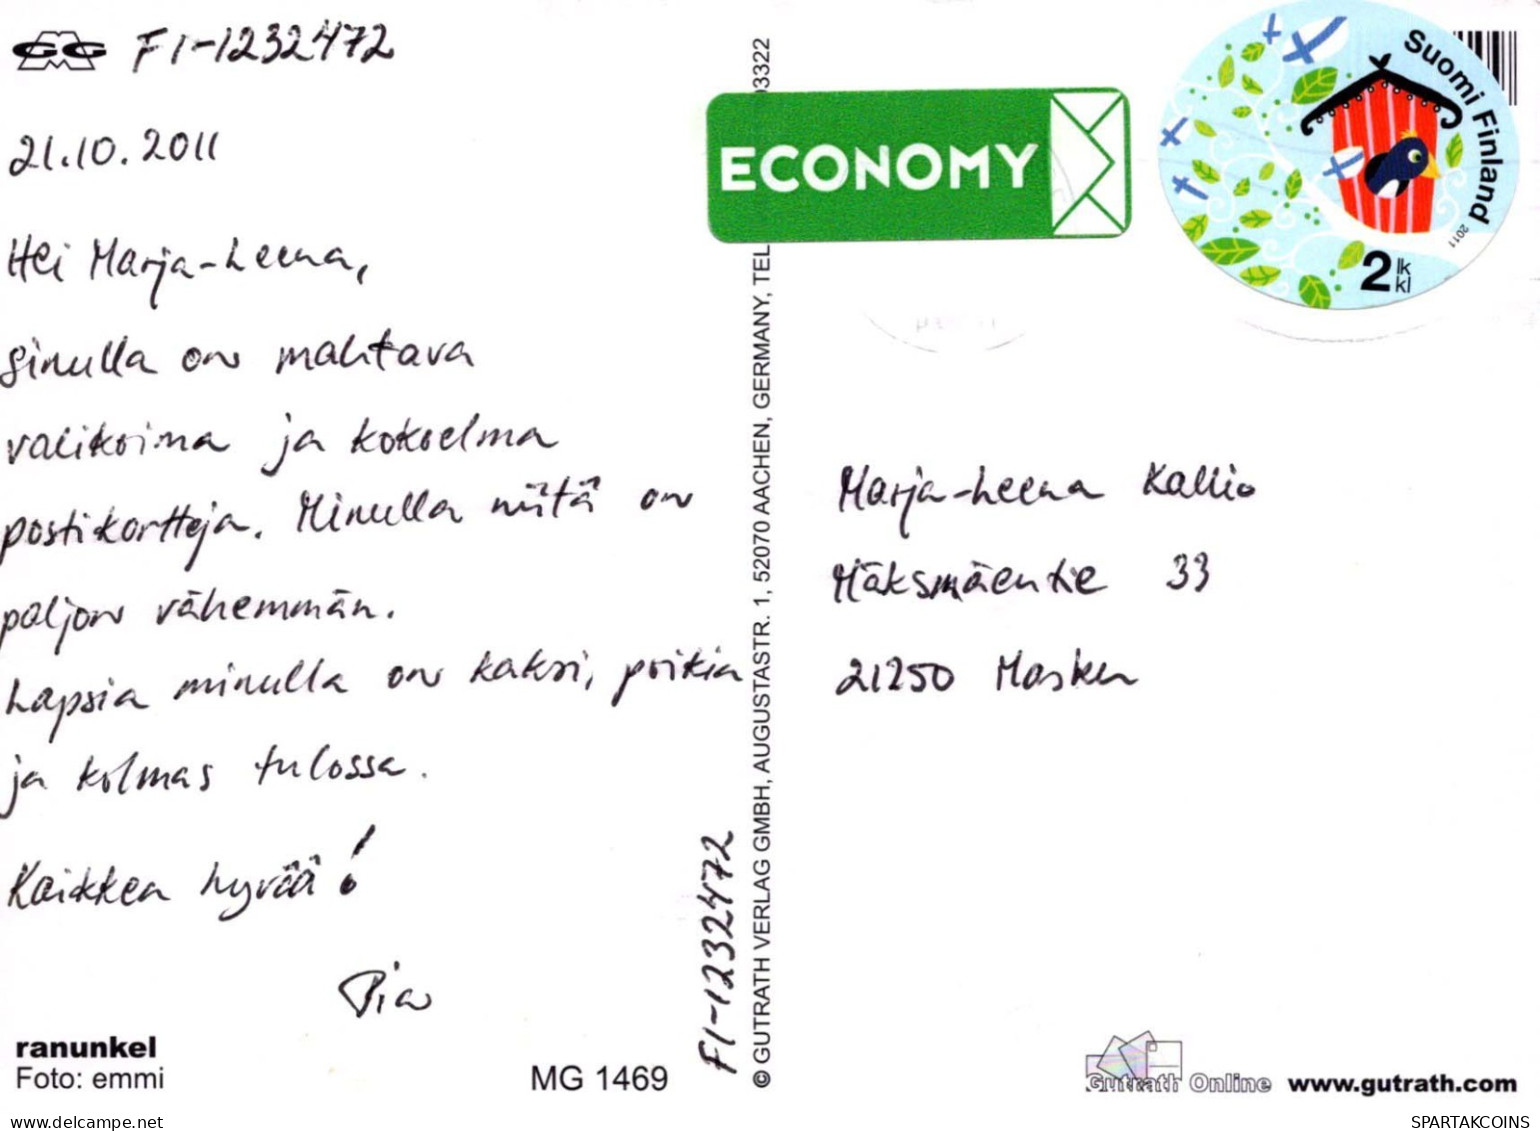 GG FI-1232472
21.10.2011
Hei Marja-Leena,
Sinulla on mahtava
valikoima ja kokoelma
postikortteja. Minulla niitä on
paljon vähemmän.
Lapsia minulla on kaksi, poikia
ja kolmas tulossa.
Kaikkea hyvää!
Pia
ranunkel
Foto: emmi
MG 1469
FI-1232472
© GUTRATH VERLAG GMBH, AUGUSTASTR. 1, 52070 AACHEN, GERMANY, TEL
03322
ECONOMY
Suomi Finland
2011
2 lk
kl
Marja-Leena Kallio
Mäksmäentie 33
21250 Masku
Gutrath Online www.gutrath.com
ranunkel.net
SPARTAKCOINS